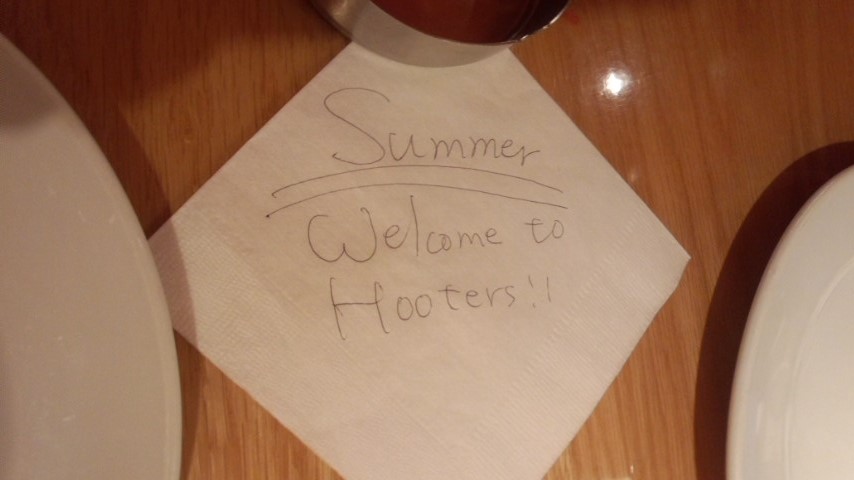 Summer
Welcome to
Hooters!!